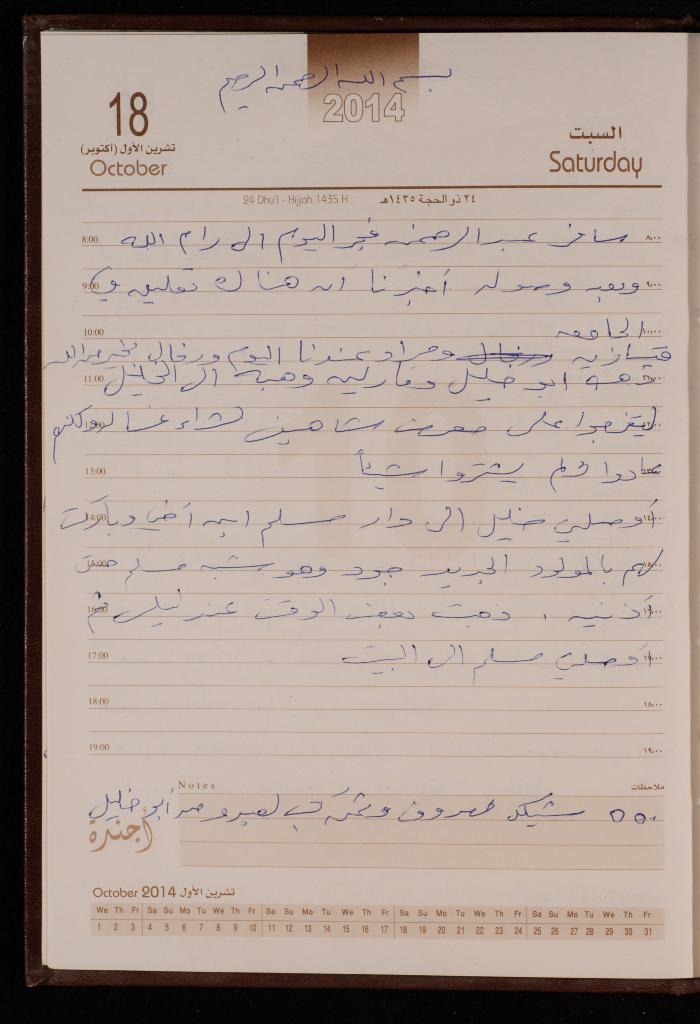 بسم الله الرحمن الرحيم
2014
18
تشرين الأول (أكتوبر)
October
السبت
Saturday
24 Dhu'l - Hijjah 1435 H ٢٤ ذو الحجة ١٤٣٥هـ
8:00 سافر عبد الرحمن فجر اليوم الى رام الله ٨:٠٠
9:00 وبعد وصوله أخبرنا ان هناك تعليق في ٩:٠٠
10:00 الجامعه ١٠:٠٠
ومراد عندنا اليوم ورفال
11:00 ذهب ابو خليل ومارلين وهبة الى الخليل ١١:٠٠
ليتفرجوا على معرض شاهين لشراء غسالة ولكنهم
13:00 عادوا ولم يشتروا شيئاً
14:00 أوصلني خليل الى دار مسلم ابن أخي وباركت ١٤:٠٠
15:00 لهم بالمولود الجديد جود وهو يشبه مسلم حتى ١٥:٠٠
16:00 أذنيه . ذهبت بعض الوقت عند ليلى ثم ١٦:٠٠
17:00 أوصلني مسلم الى البيت ١٧:٠٠
18:00 ١٨:٠٠
19:00 ١٩:٠٠
Notes ملاحظات
٥٥٠ شيكل مصروف من أبو خليل
أجندة
October 2014 تشرين الأول
We Th Fr Sa Su Mo Tu We Th Fr Sa Su Mo Tu We Th Fr Sa Su Mo Tu We Th Fr Sa Su Mo Tu We Th Fr
1 2 3 4 5 6 7 8 9 10 11 12 13 14 15 16 17 18 19 20 21 22 23 24 25 26 27 28 29 30 31